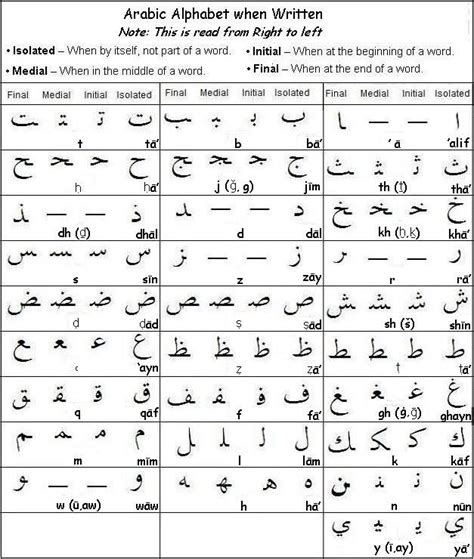 Arabic Alphabet when Written
Note: This is read from Right to left
• Isolated – When by itself, not part of a word. • Initial – When at the beginning of a word.
• Medial – When in the middle of a word. • Final – When at the end of a word.
Final Medial Initial Isolated Final Medial Initial Isolated Final Medial Initial Isolated
ـت ـتـ تـ ت ـب ـبـ بـ ب ـا — — ا
t tā’ b bā’ ’ ā ’alif
ـح ـحـ حـ ح ـج ـجـ جـ ج ـث ـثـ ثـ ث
ḥ ḥā’ j (ğ, g) jīm th (ṯ) thā’
ـذ — — ذ ـد — — د ـخ ـخـ خـ خ
dh (ḏ) dhāl d dāl kh (ḫ,ḵ) khā’
ـس ـسـ سـ س ـز — — ز ـر — — ر
s sīn z zāy r rā’
ـض ـضـ ضـ ض ـص ـصـ صـ ص ـش ـشـ شـ ش
ḍ ḍād ṣ ṣād sh (š) shīn
ـع ـعـ عـ ع ـظ ـظـ ظـ ظ ـط ـطـ طـ ط
‘ ‘ayn ẓ ẓā’ ṭ ṭā’
ـق ـقـ قـ ق ـف ـفـ فـ ف ـغ ـغـ غـ غ
q qāf f fā’ gh (ġ, ğ) ghayn
ـم ـمـ مـ م ـل ـلـ لـ ل ـك ـكـ كـ ك
m mīm l lām k kāf
ـو — — و ـه ـهـ هـ ه ـن ـنـ نـ ن
w (ū,aw) wāw h hā’ n nūn
ـي ـيـ يـ ي
y (ī, ay) yā’